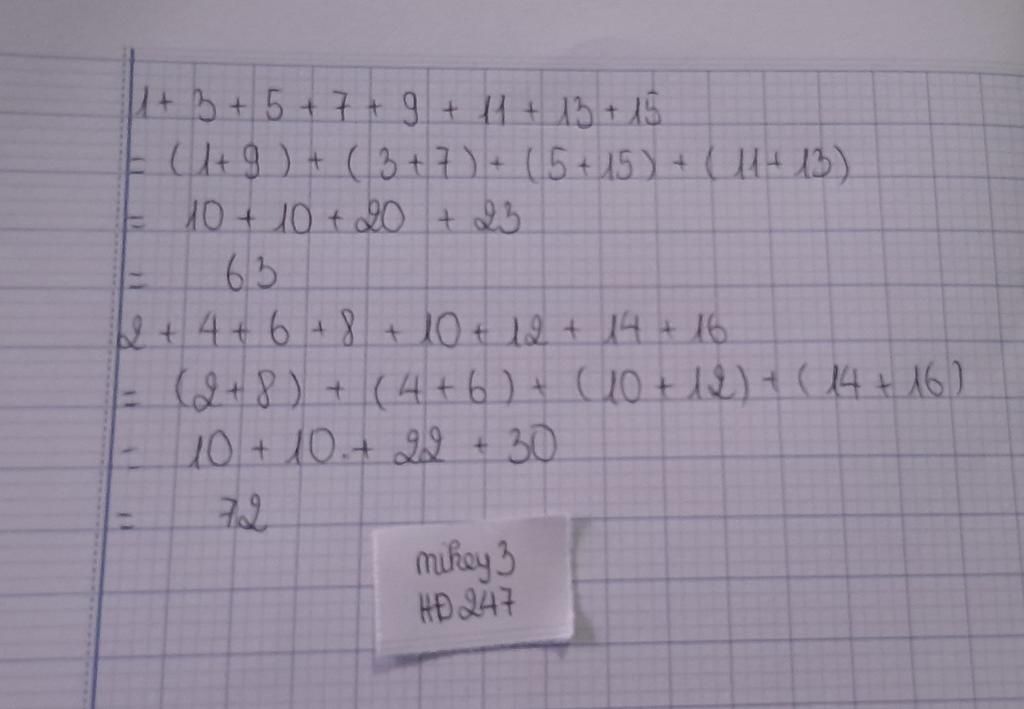 1 + 3 + 5 + 7 + 9 + 11 + 13 + 15
= (1+9) + (3+7) + (5+15) + (11+13)
= 10 + 10 + 20 + 23
= 63
2 + 4 + 6 + 8 + 10 + 12 + 14 + 16
= (2+8) + (4+6) + (10+12) + (14+16)
= 10 + 10 + 22 + 30
= 72
mikey3
HĐ247